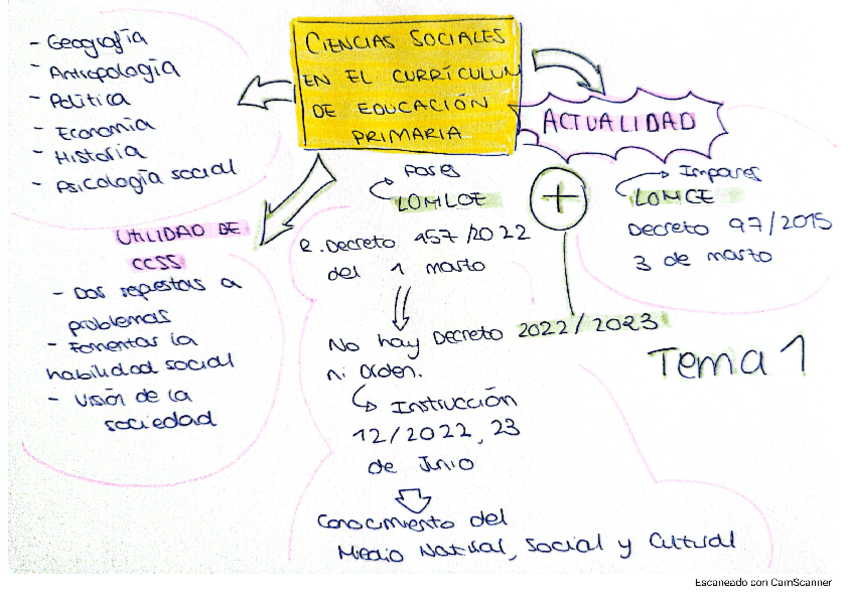 CIENCIAS SOCIALES
EN EL CURRÍCULUM
DE EDUCACIÓN
PRIMARIA
- Geografía
- Antropología
- Política
- Economía
- Historia
- Psicología social
UTILIDAD DE
CCSS
- Dos repestas a
problemas
- Fomentas la
habilidad social
- Visión de la
sociedad
ACTUALIDAD
Pases
LOMLOE
R. Decreto 157/2022
del 1 marzo
No hay Decreto 2022/2023
ni Orden.
Instrucción
12/2022, 23
de Junio
Conocimiento del
Medio Natural, Social y Cultural
+
Impares
LOMCE
Decreto 97/2015
3 de marzo
Tema 1
Escaneado con CamScanner